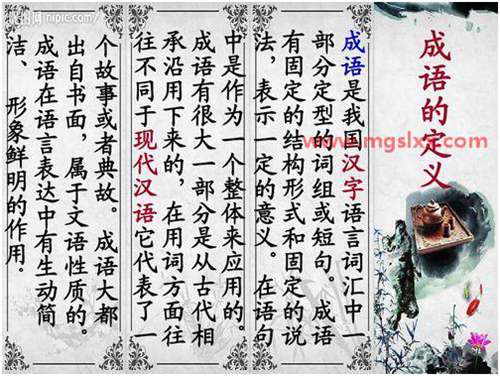 成语的定义
成语是我国汉字语言词汇中一
部分定型的词组或短句。成语
有固定的结构形式和固定的说
法，表示一定的意义。在语句
中是作为一个整体来应用的。
成语有很大一部分是从古代相
承沿用下来的，在用词方面往
往不同于现代汉语它代表了一
个故事或者典故。 成语大都
出自书面，属于文语性质的。
成语在语言表达中有生动简
洁、 形象鲜明的作用。
昵图网 nipic.com